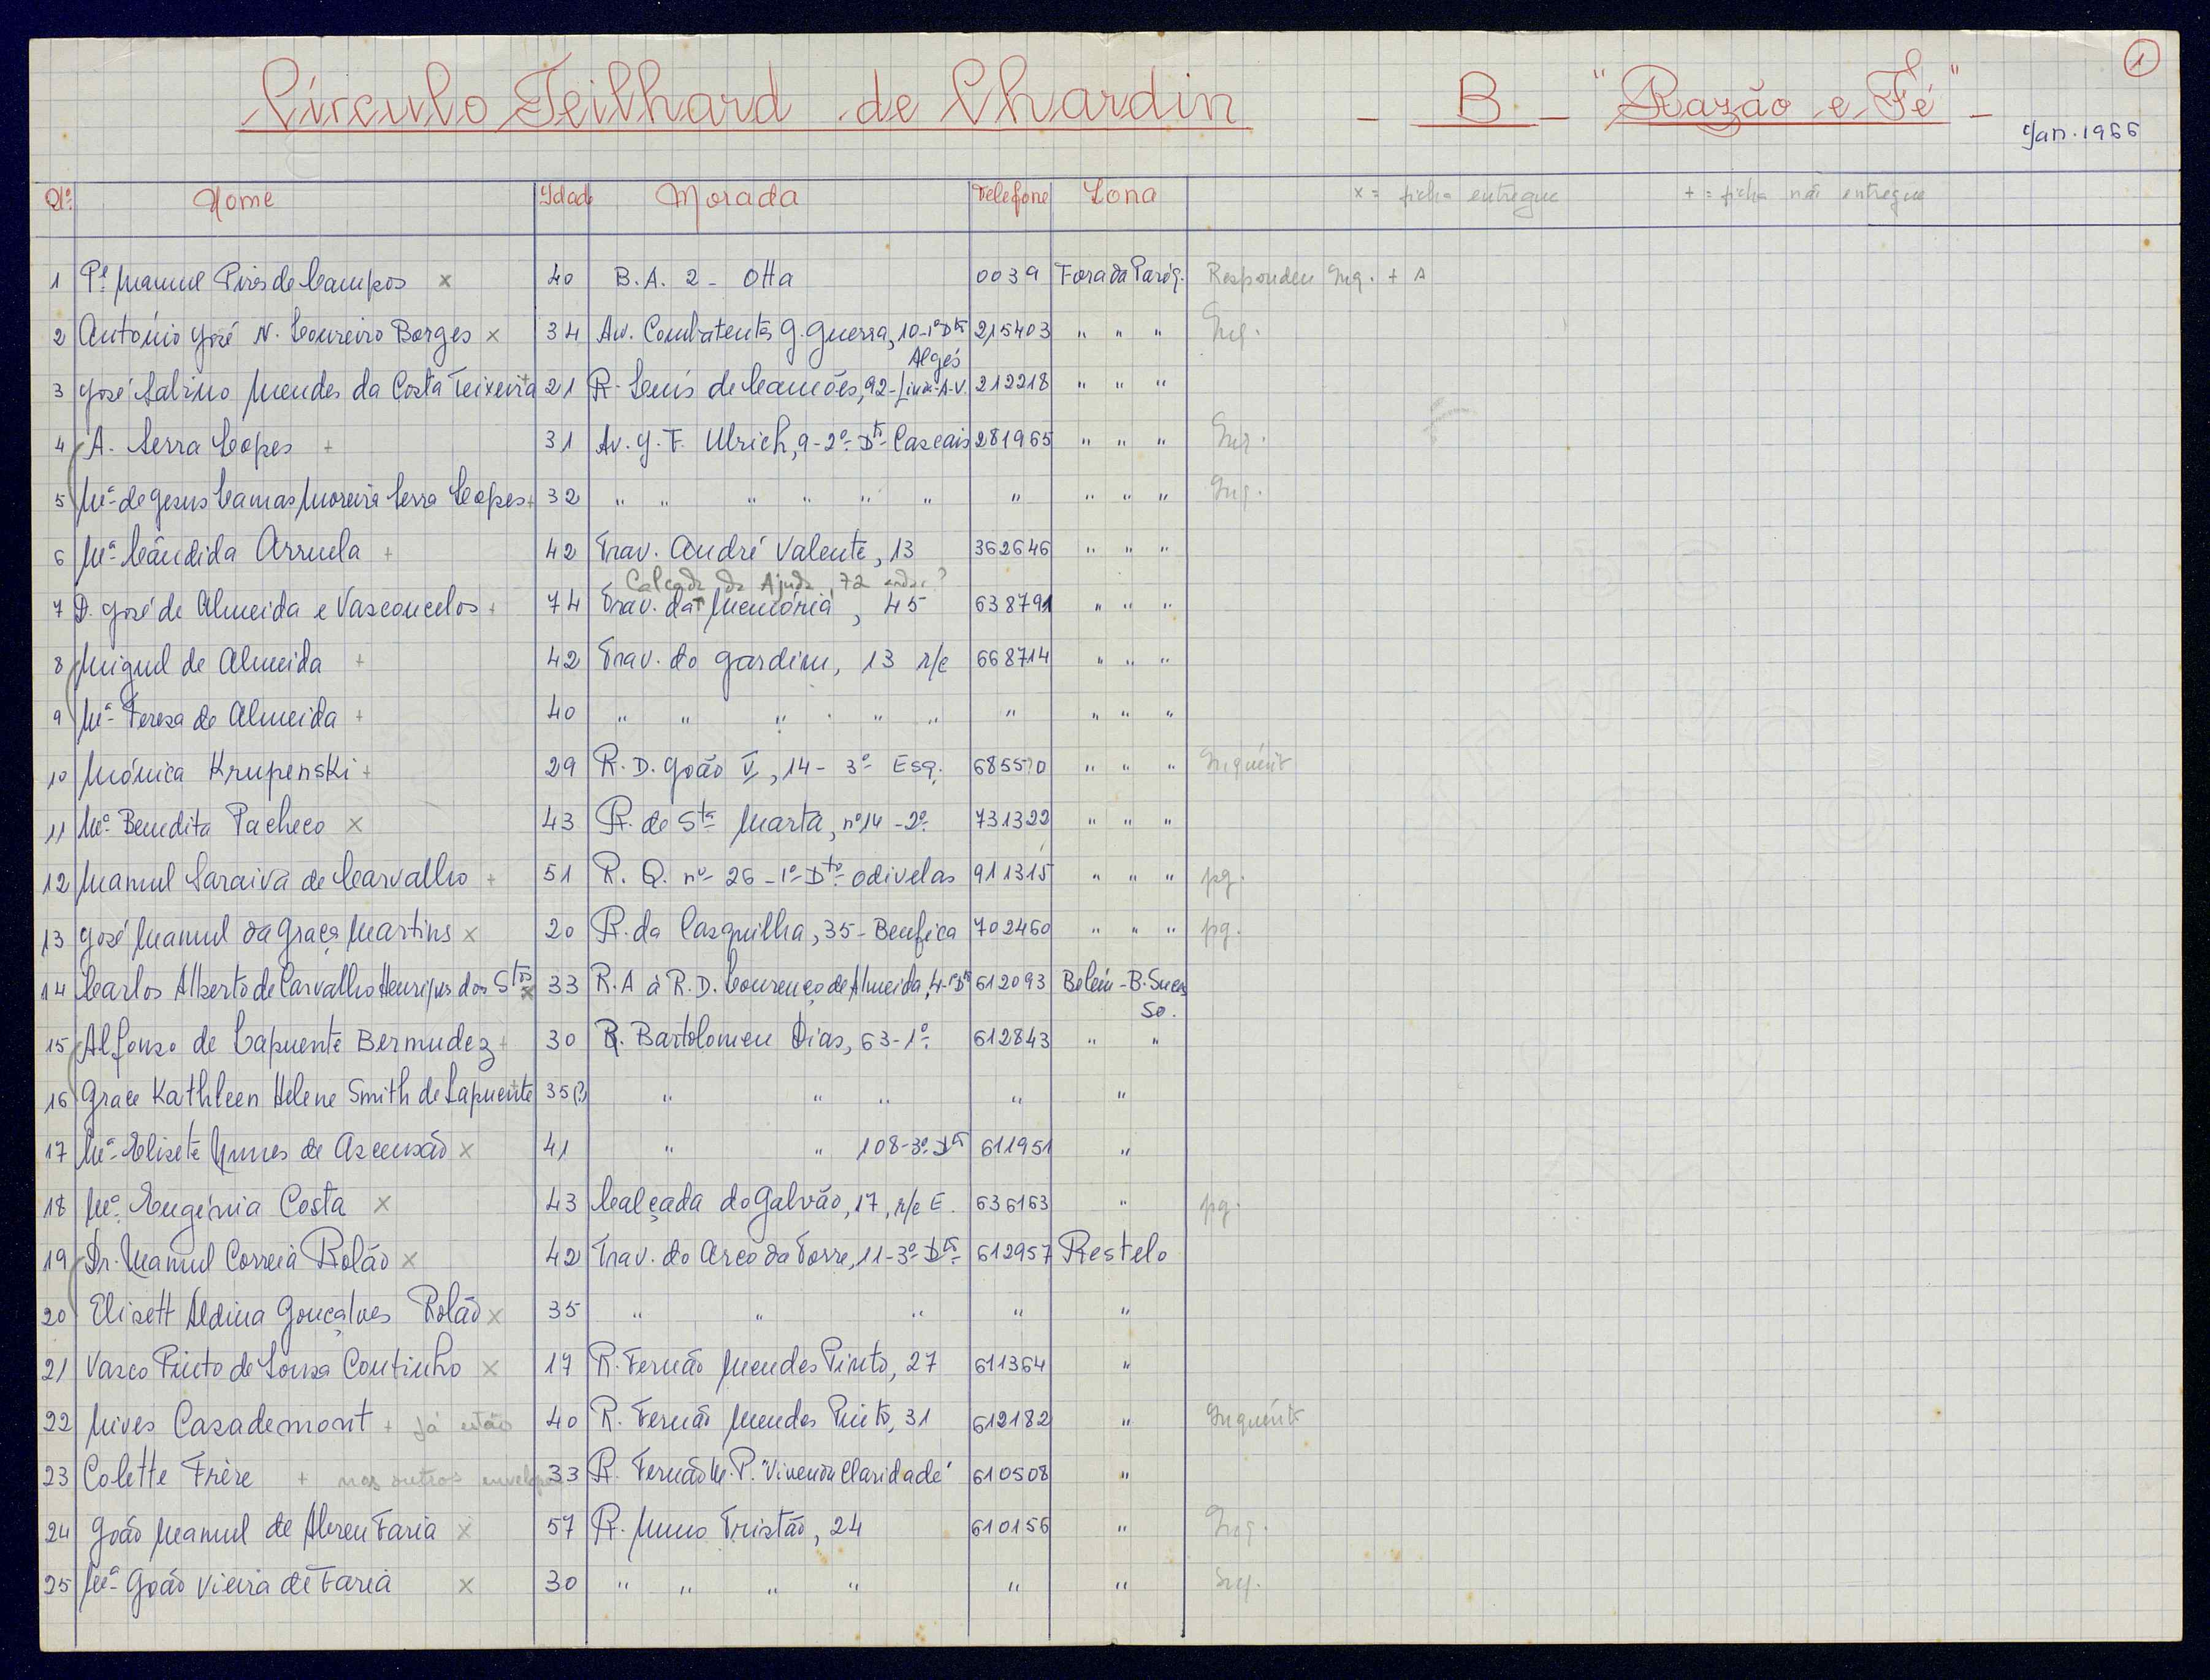 1
Círculo Teilhard de Chardin - B - "Razão e Fé" -
Jan. 1966
Nº Nome Idade Morada Telefone Zona x = ficha entregue + = ficha não entregue
1 Pe Manuel Pires de Campos x 40 B.A. 2 - Otta 0039 Fora da Paróq. Respondeu Inq. + A
2 António José N. Loureiro Borges x 34 Av. Combatentes G. Guerra, 10-1º Dtº 215403 " " " Inq.
Algés
3 José Sabino Mendes da Costa Teixeira 21 R. Luís de Camões, 92 - A.V. 212218 " " "
4 A. Serra Lopes + 31 Av. J. F. Ulrich, 9-2º Dtº Cascais 281965 " " " Inq.
5 Mª de Jesus Lamas Moreira Serra Lopes + 32 " " " " " " " " " " Inq.
6 Mª Cândida Arruela + 42 Trav. André Valente, 13 362646 " " "
Calçada da Ajuda, 72 andar?
7 D. José de Almeida e Vasconcelos + 74 Trav. da Memória, 45 638791 " " "
8 Miguel de Almeida + 42 Trav. do Jardim, 13 r/c 668714 " " "
9 Mª Teresa de Almeida + 40 " " " " " " " " "
10 Mónica Krupenski + 29 R. D. João V, 14 - 3º Esq. 685570 " " " Inquérit
11 Mª Benedita Pacheco x 43 R. de Stª Marta, nº 14 - 2º 731322 " " "
12 Manuel Saraiva de Carvalho + 51 R. Q. nº 26 - 1º Dtº Odivelas 911315 " " " pg.
13 José Manuel da Graça Martins x 20 R. da Casquilha, 35 - Benfica 702460 " " " pg.
14 Carlos Alberto de Carvalho Henriques dos Stos x 33 R. A à R. D. Lourenço de Almeida, 4-1º Dtº 612093 Belém - B. Suces
so.
15 Alfonso de Lapuente Bermudez + 30 R. Bartolomeu Dias, 63-1º 612843 " "
16 Grace Kathleen Helene Smith de Lapuente + 35(?) " " " " "
17 Mª Elisete Nunes de Ascensão x 41 " " 108-3º Dtº 611951 "
18 Mª Eugénia Costa x 43 Calçada do Galvão, 17, r/c E. 636163 " pg.
19 Dr. Manuel Correia Rolão x 42 Trav. do Arco da Torre, 11-3º Dtº 612957 Restelo
20 Elisett Aldina Gonçalves Rolão x 35 " " " " "
21 Vasco Pinto de Sousa Coutinho x 17 R. Fernão Mendes Pinto, 27 611364 "
22 Nives Casademont + já estão 40 R. Fernão Mendes Pinto, 31 612182 " Inquérit
23 Colette Frère + nos outros envelopes 33 R. Fernão M. P. "Vivenda Claridade" 610508 "
24 João Manuel de Abreu Faria x 57 R. Nuno Tristão, 24 610156 " Inq.
25 Mª João Vieira de Faria x 30 " " " " " " Inq.